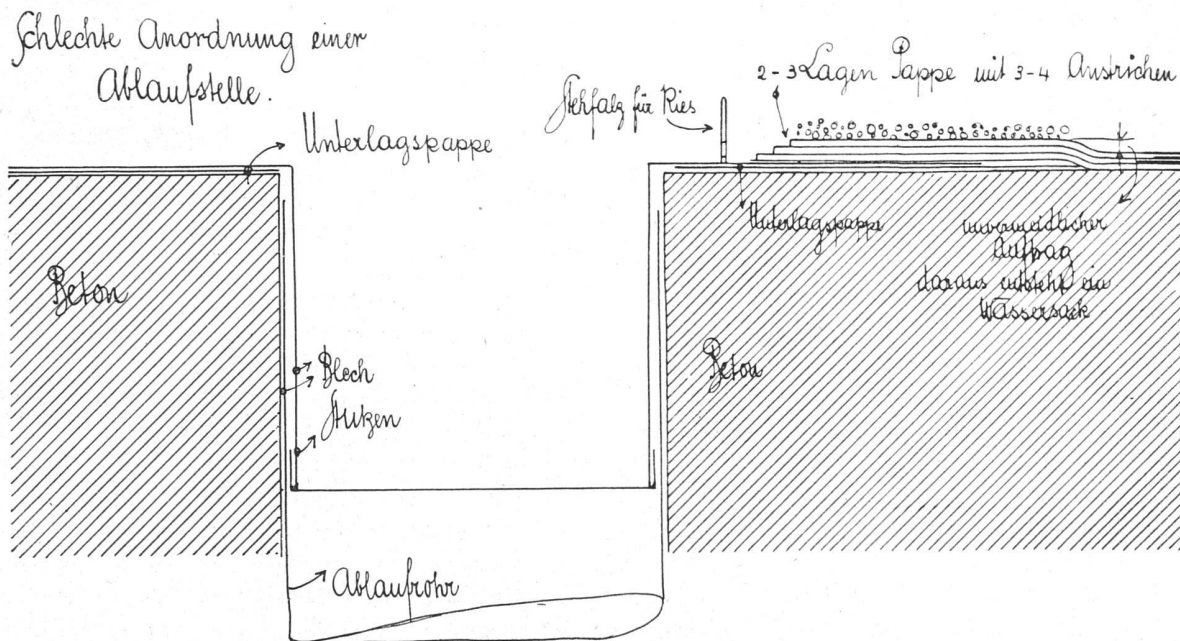 Schlechte Anordnung einer
Ablaufstelle.
Unterlagspappe
Stehfalz für Kies
2-3 Lagen Pappe mit 3-4 Anstrichen
Unterlagspappe
unvermeidlicher
Auftrag
daraus entsteht ein
Wassersack
Beton
Beton
Blech
Stutzen
Ablaufrohr